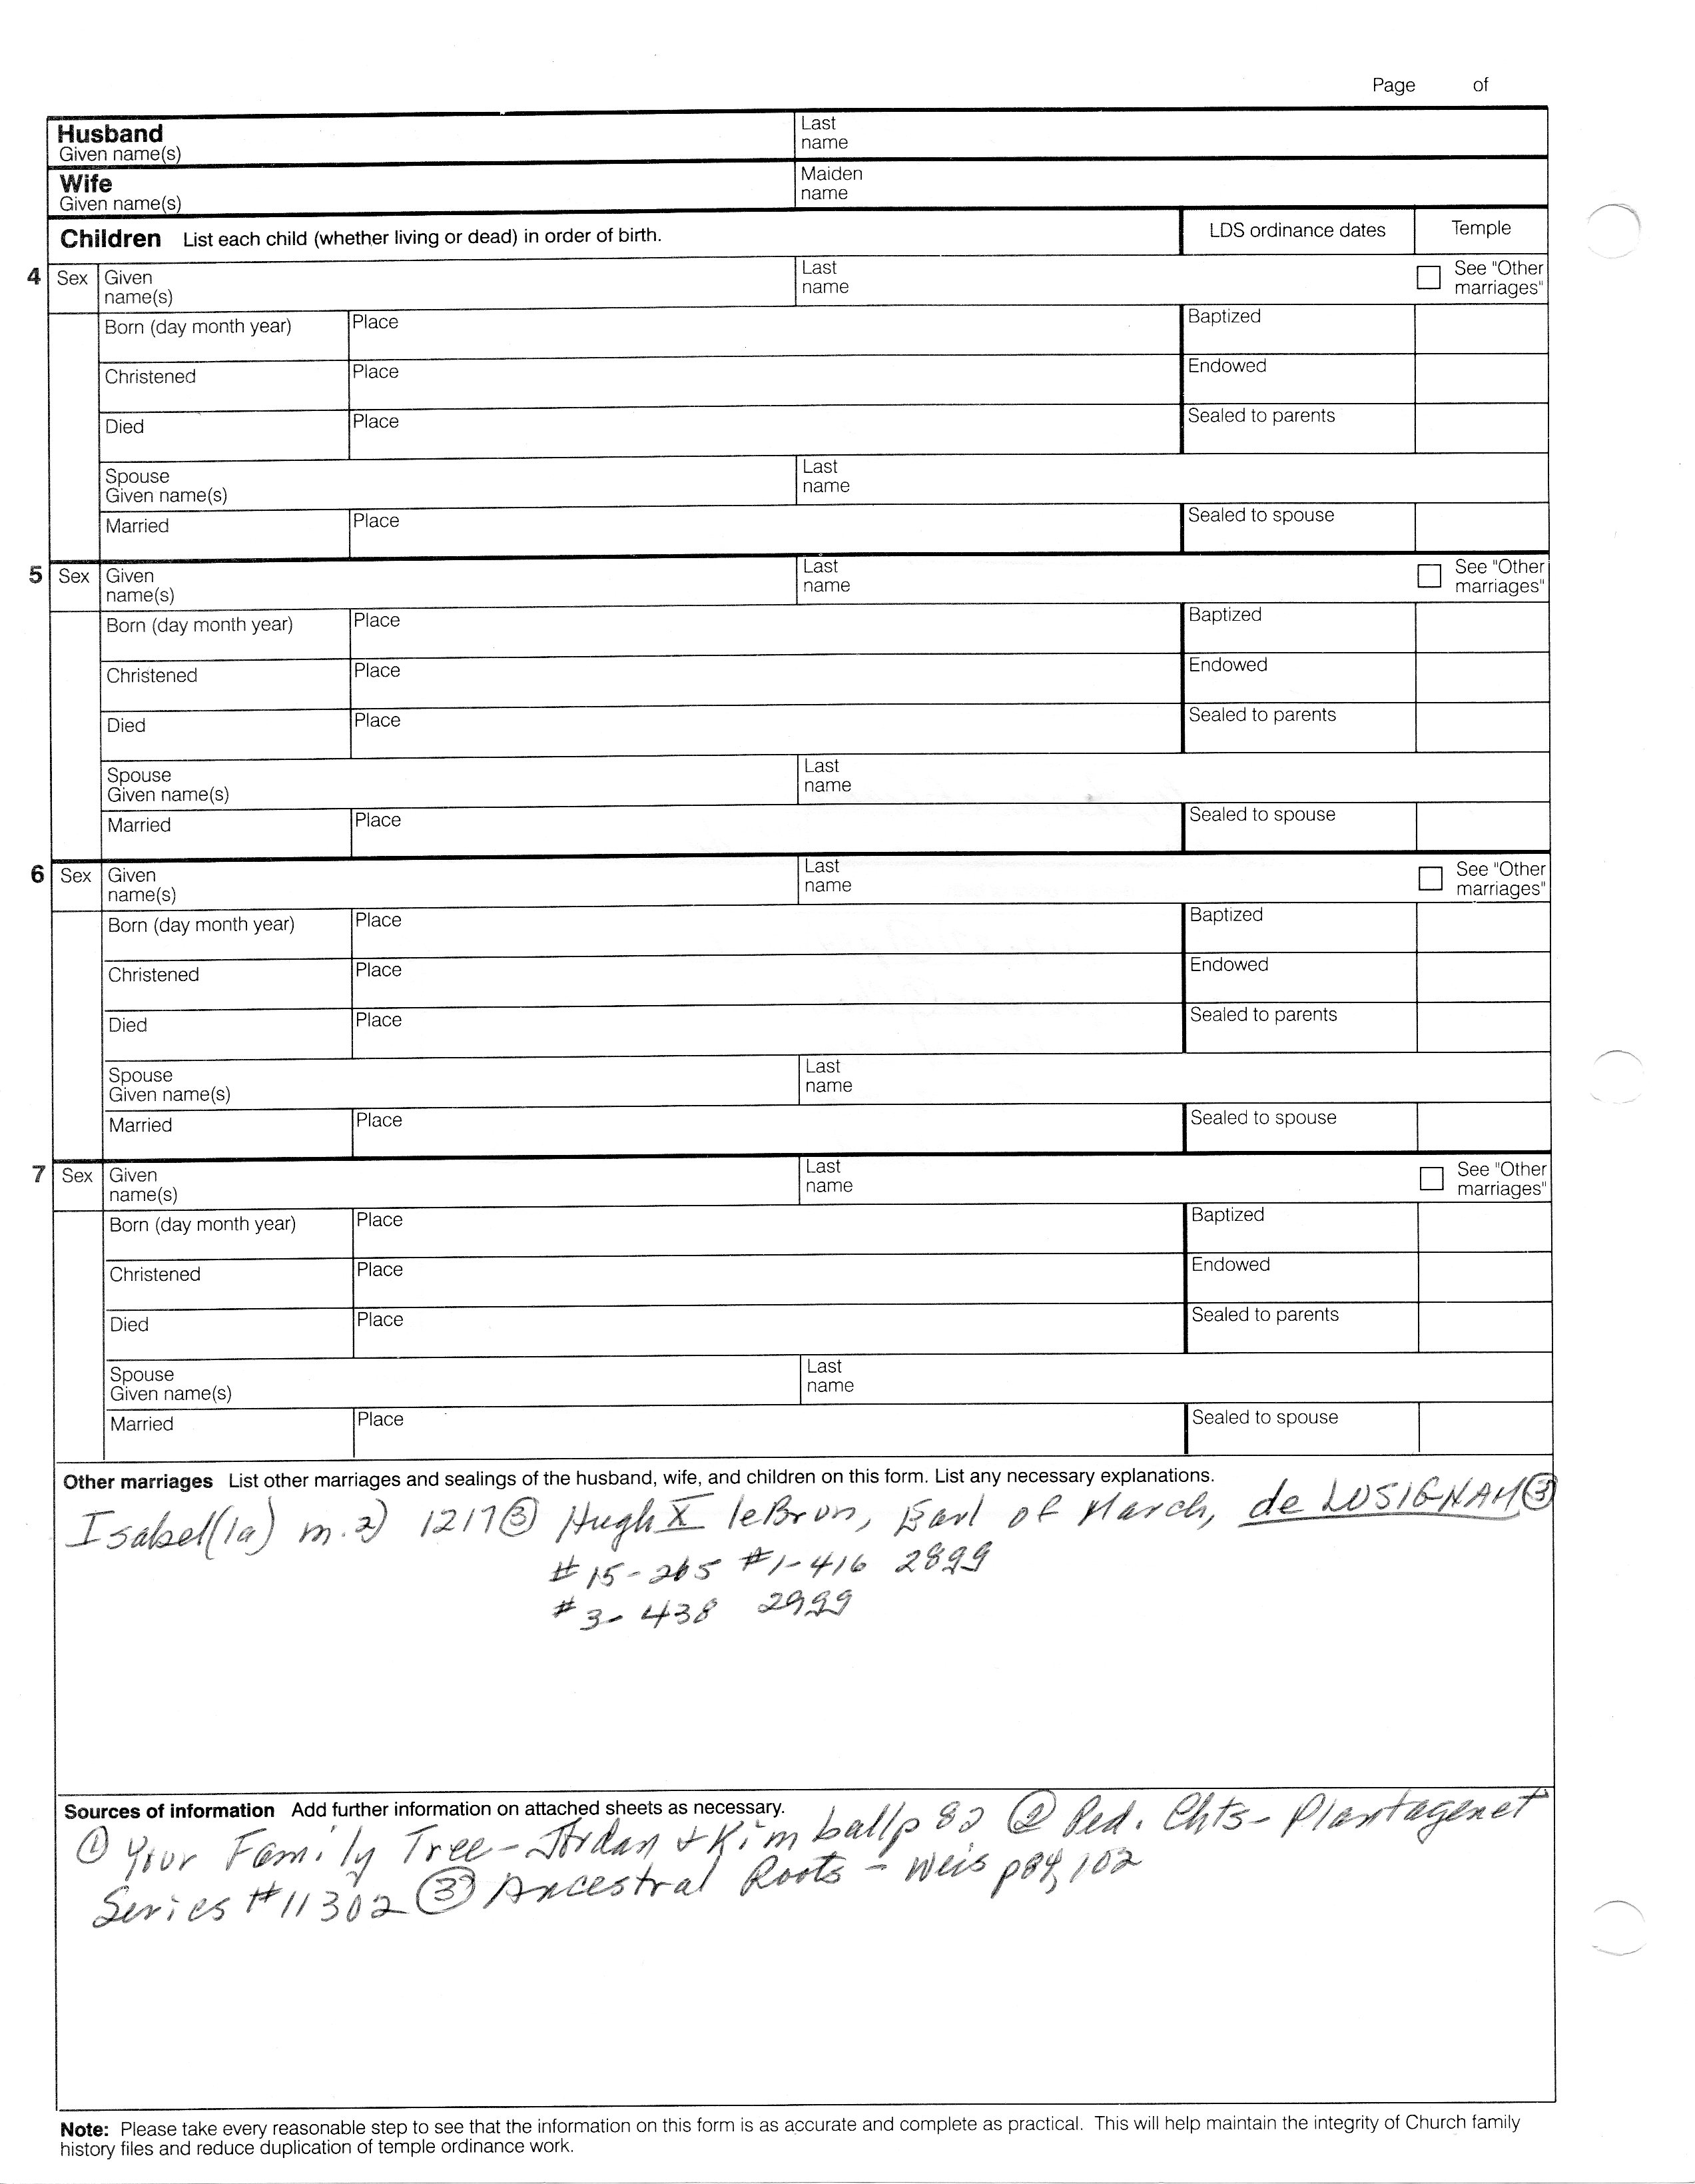 Page of
Husband
Given name(s)
Last
name
Wife
Given name(s)
Maiden
name
Children List each child (whether living or dead) in order of birth.
LDS ordinance dates
Temple
4 Sex Given
name(s)
Last
name
See "Other
marriages"
Born (day month year) Place Baptized
Christened Place Endowed
Died Place Sealed to parents
Spouse
Given name(s)
Last
name
Married Place Sealed to spouse
5 Sex Given
name(s)
Last
name
See "Other
marriages"
Born (day month year) Place Baptized
Christened Place Endowed
Died Place Sealed to parents
Spouse
Given name(s)
Last
name
Married Place Sealed to spouse
6 Sex Given
name(s)
Last
name
See "Other
marriages"
Born (day month year) Place Baptized
Christened Place Endowed
Died Place Sealed to parents
Spouse
Given name(s)
Last
name
Married Place Sealed to spouse
7 Sex Given
name(s)
Last
name
See "Other
marriages"
Born (day month year) Place Baptized
Christened Place Endowed
Died Place Sealed to parents
Spouse
Given name(s)
Last
name
Married Place Sealed to spouse
Other marriages List other marriages and sealings of the husband, wife, and children on this form. List any necessary explanations.
Isabel(1a) m. 2) 1217③ Hugh X leBrun, Earl of March, de LUSIGNAM③
#15-265 #1-416 2899
#3-438 2999
Sources of information Add further information on attached sheets as necessary.
① Your Family Tree - Jordan + Kimball p 82 ② Ped. Chts - Plantagenet
Series #11302 ③ Ancestral Roots - Weis p84, 102
Note: Please take every reasonable step to see that the information on this form is as accurate and complete as practical. This will help maintain the integrity of Church family
history files and reduce duplication of temple ordinance work.